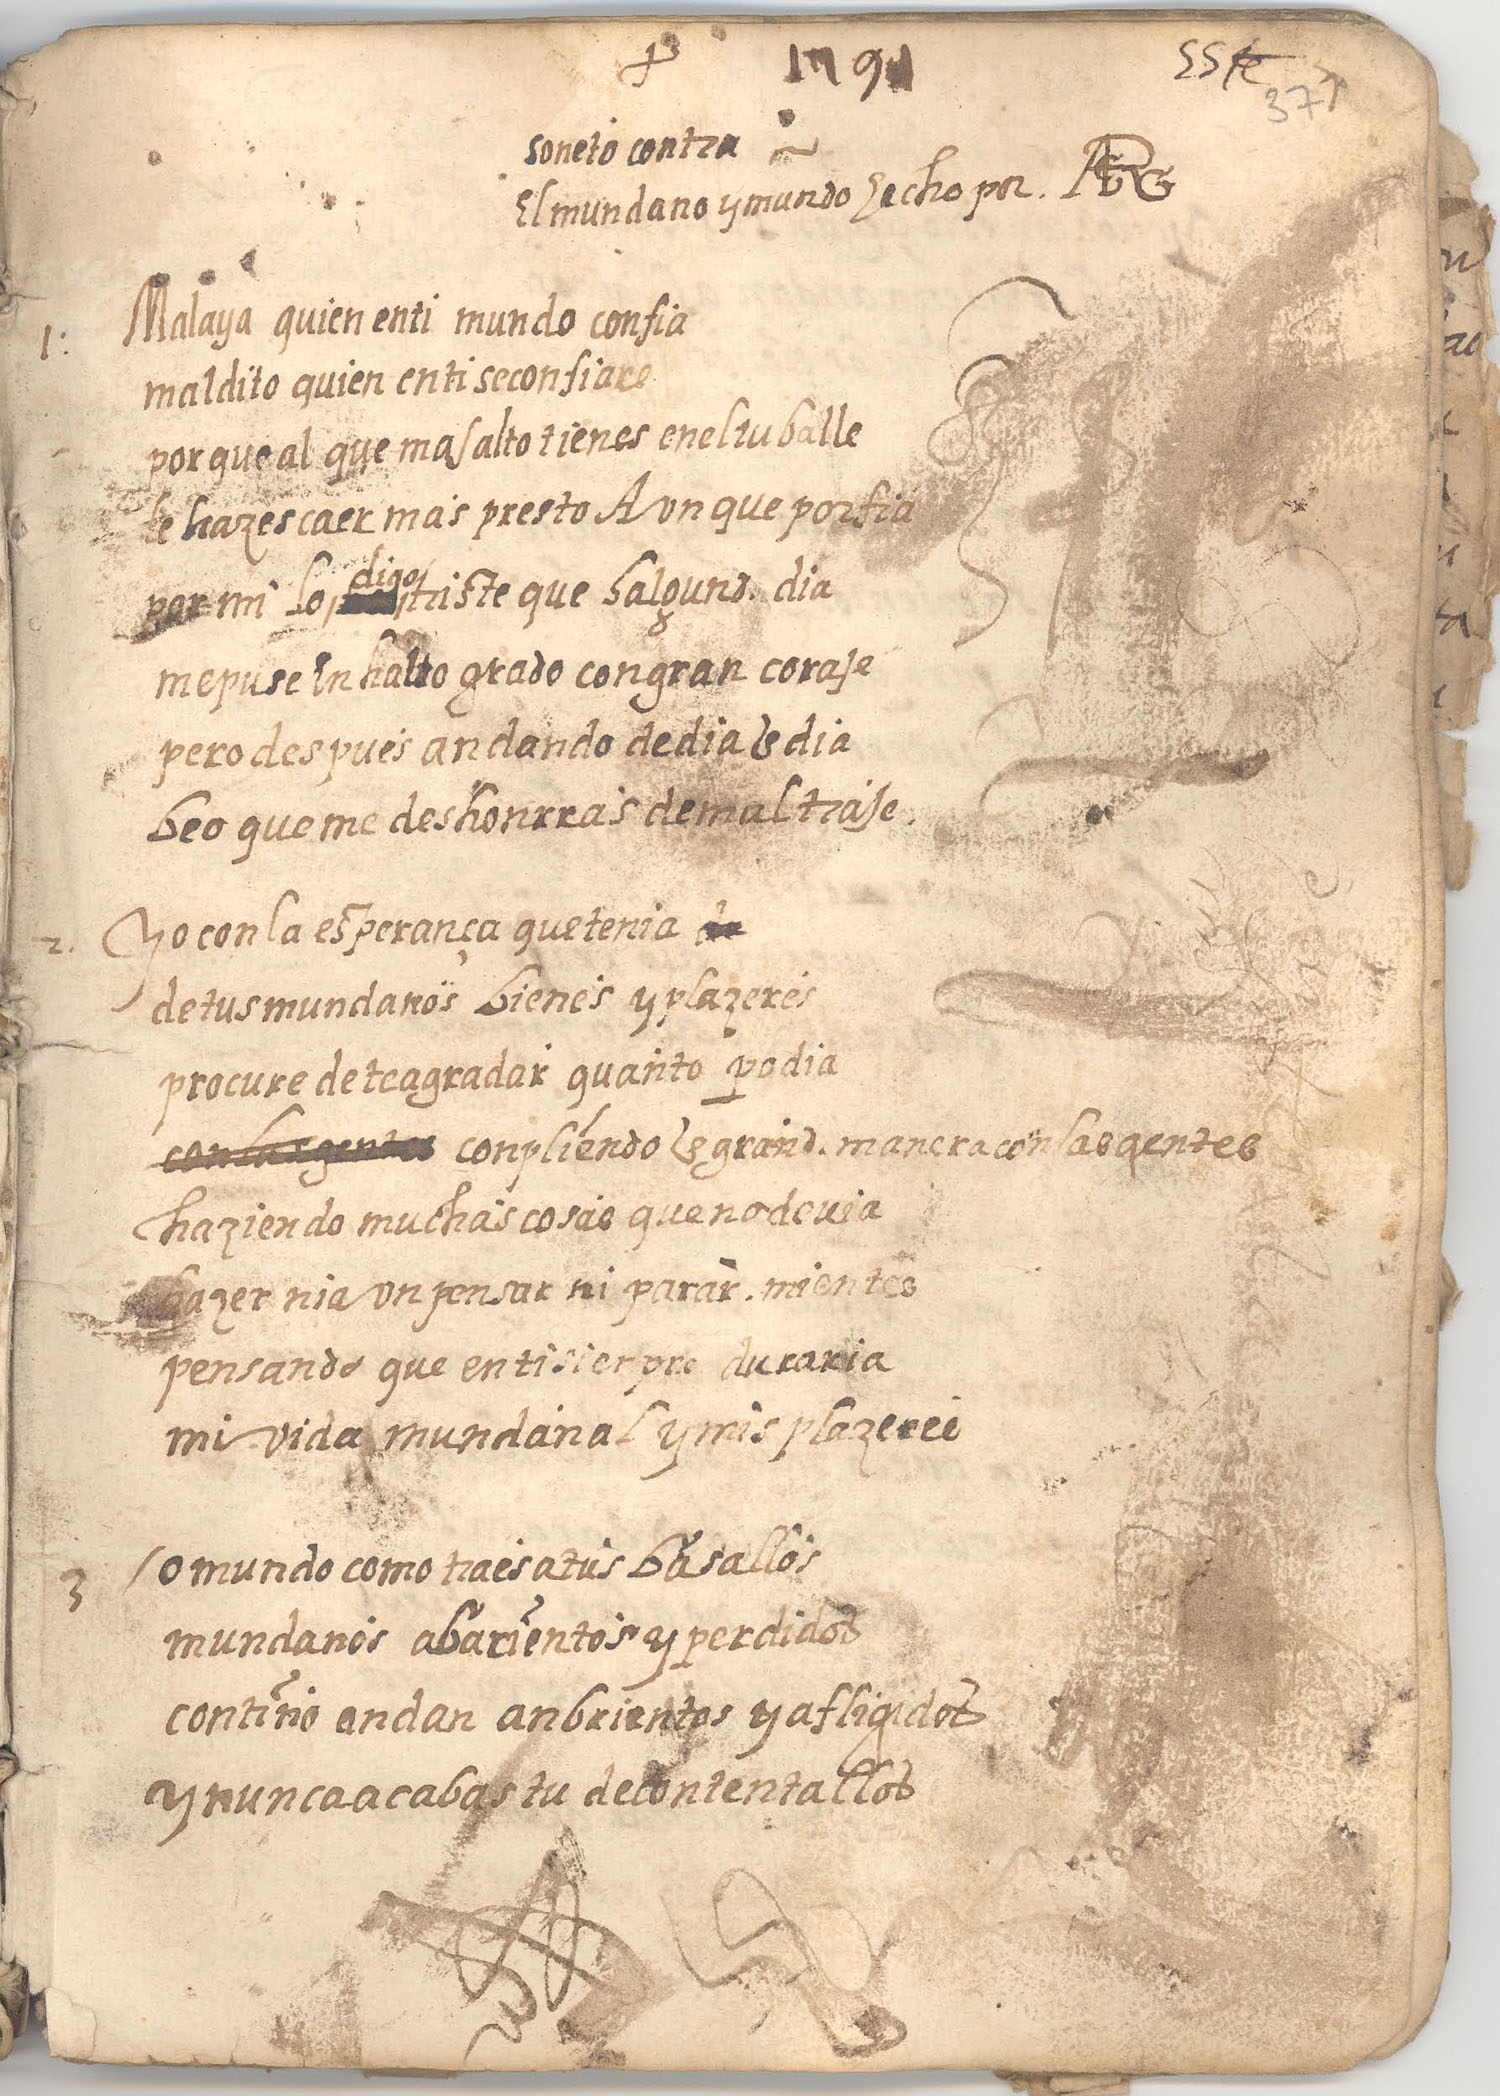 1791
soneto contra
El mundano y mundo hecho por.
1: Malaya quien enti mundo confia
maldito quien enti seconfiare
porque al que mas alto tienes eneltu balle
le hazes caer mas presto Avn que porfia
por mi lo digo triste que balgund. dia
mepuse in halto grado congran coraje
pero despues andando de dia de dia
beo que me deshonrras demal traje.
2. Yo con la esperança que tenia de
de tus mundanos bienes y plazeres
procure de teagradar quanto podia
con las gentes conpliendo de grand. manera con las gentes
haziendo muchas cosas que no devia
hazer ni avn pensar ni parar. mientes
pensando que enti sienpre duraria
mi vida mundanal y mis plazeres
3 o mundo como traes atus basallos
mundanos abarientos y perdidos
contino andan anbrientos y afligidos
y nunca acabas tu decontentallos